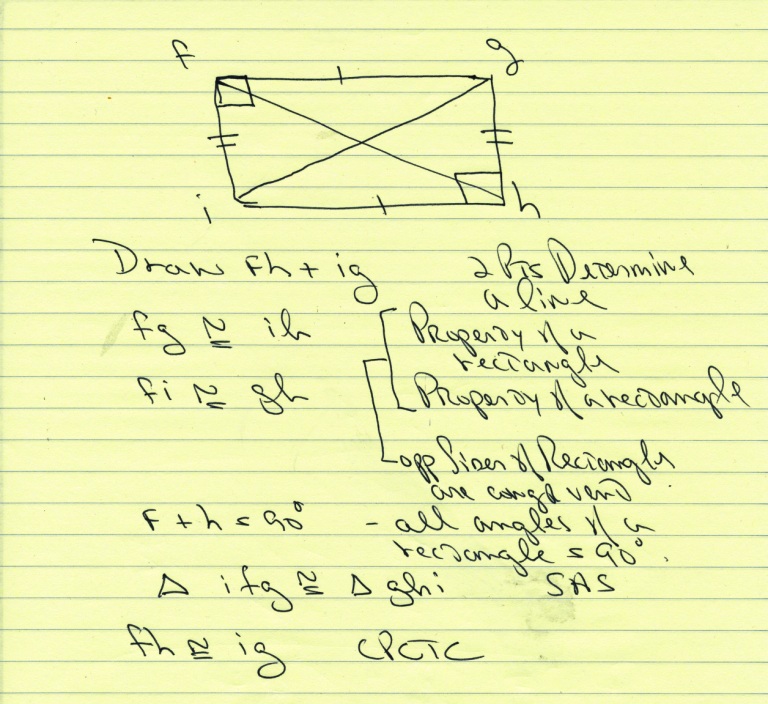 f g
i h
Draw fh + ig 2 Pts Determine
a line
fg ≅ ih Property of a
rectangle
fi ≅ gh Property of a rectangle
opp Sides of Rectangle
are congruent
f + h = 90° - all angles of a
rectangle = 90°.
Δ ifg ≅ Δ ghi SAS
fh ≅ ig CPCTC